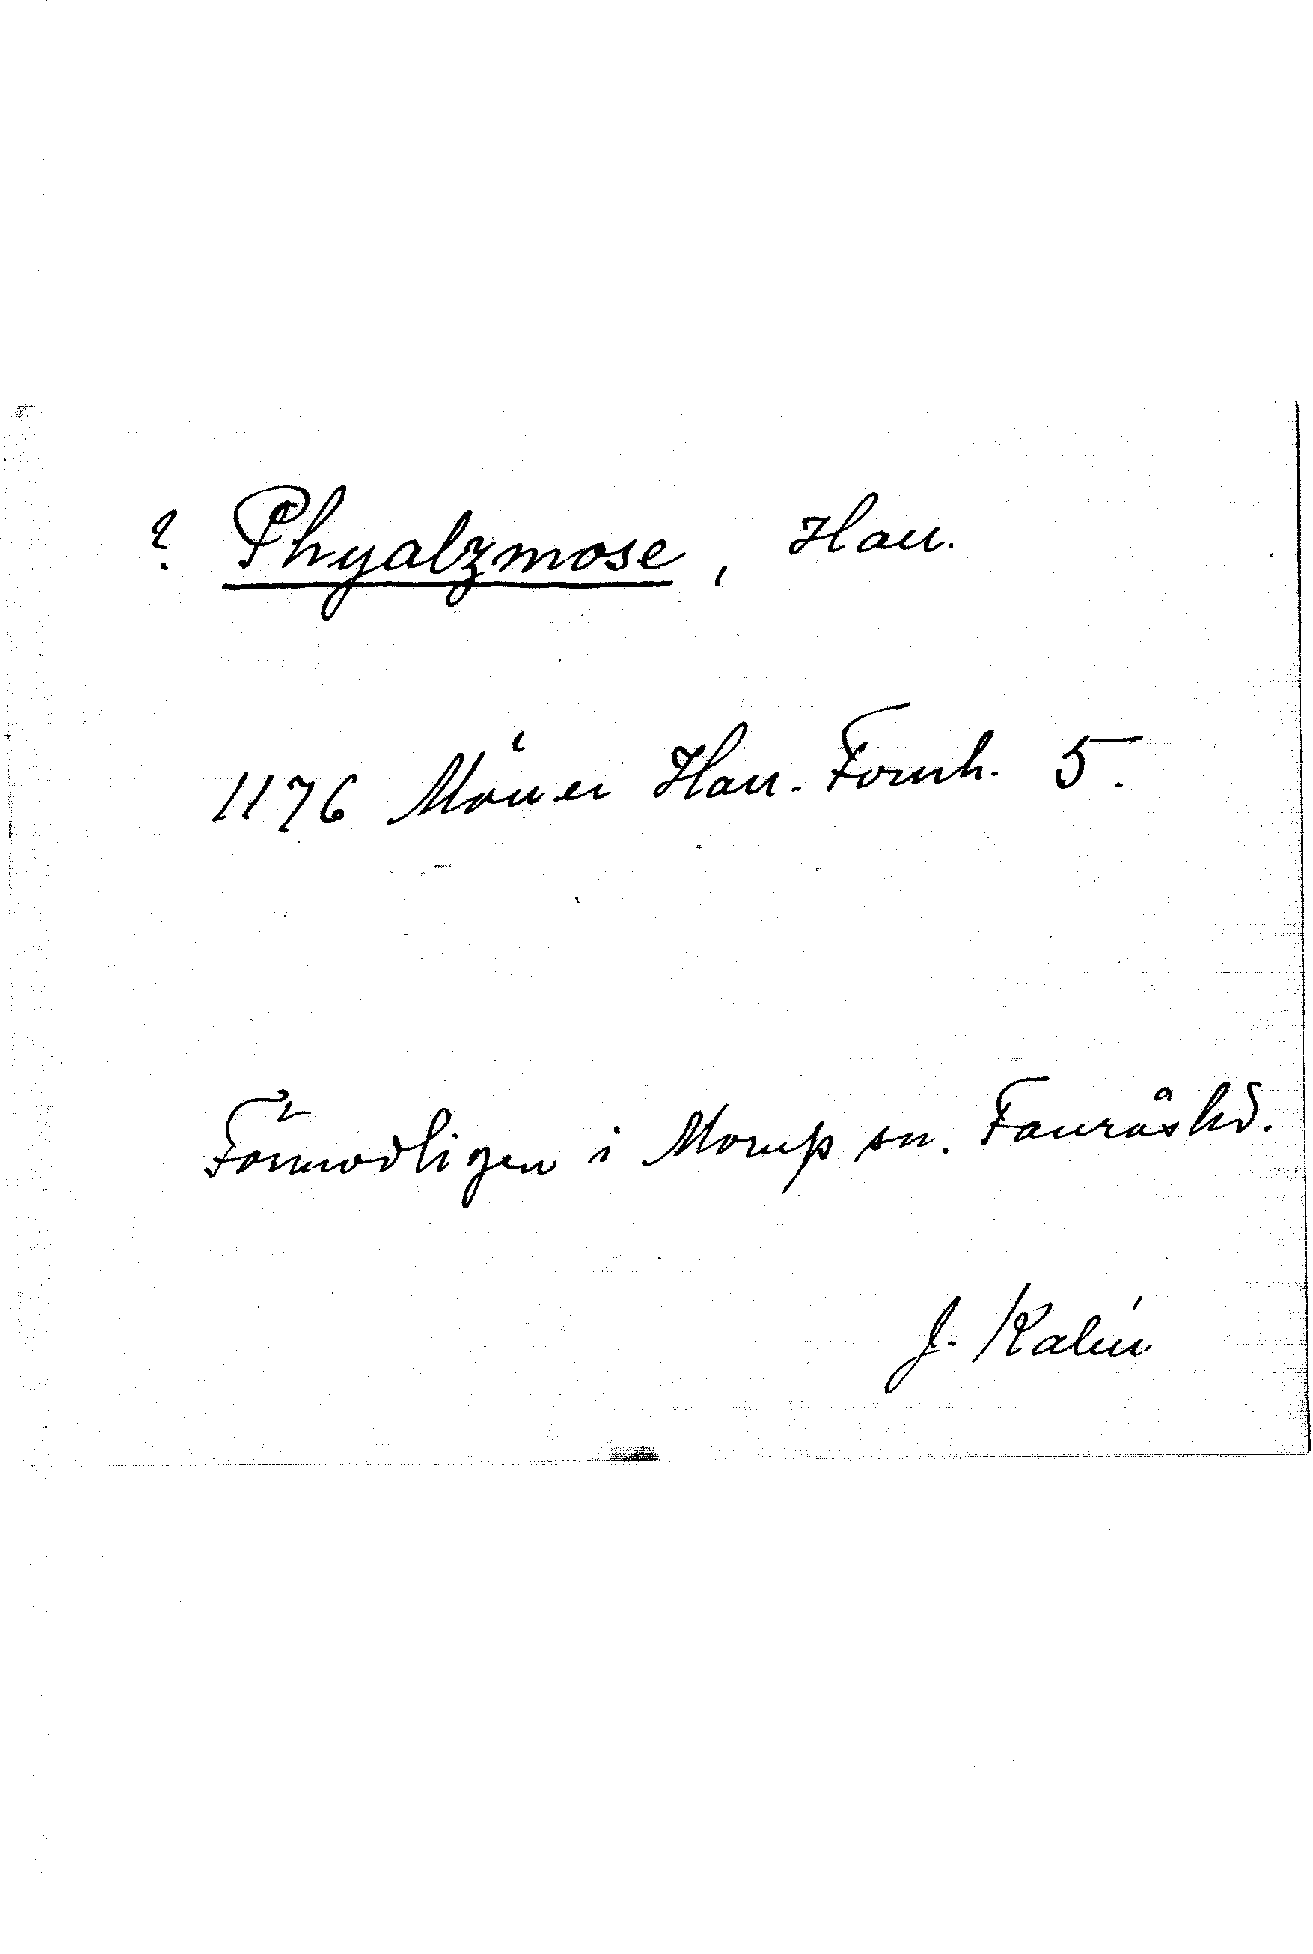 ? Phyalzmose, Hall.
1176 Mörner Hall. Fornh. 5.
Förmodligen i Morup sn. Fauråshd.
J. Kalén